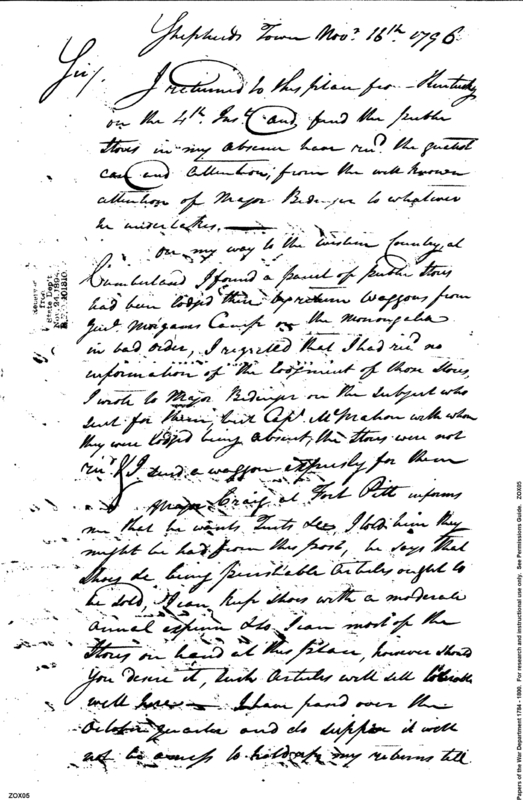 Shepherds Town Novr. 16th 1796
Sir/.
I returned to this place from Kentucky
on the 4th. Inst. and find the public
Stores in my absence have recd. the greatest
care and attention, from the well known
attention of Major Bedinger to whatever
he undertakes.
On my way to the western Country, at
Cumberland I found a parcel of public Stores
had been lodged there by return Waggons from
Genl. Morgans Camp on the Monongalia
in bad order, I regretted that I had recd. no
information of the lodgment of those Stores,
I wrote to Major Bedinger on the subject who
sent for them, but Capt. McMahon with whom
they were lodged being absent, the Stores were not
recd. & I send a waggon expressly for them
Major Craig at Fort Pitt informs
me that he wants Tents &c, I told him they
might be had from this post, he says that
Shoes &c. being perishable Articles ought to
be sold, I can keep Shoes with a moderate
annual expence &so I can most of the
Stores on hand at this place, however should
You desire it, such Articles will sell tolerable
well here — I have pass'd over the
October quarter and do suppose it will
not be amiss to hold up my returns till
Received
from
State Dep't
Nov. 24, 1894
101810
ZOX05
Papers of the War Department 1784 - 1800. For research and instructional use only. See Permissions Guide. ZOX05